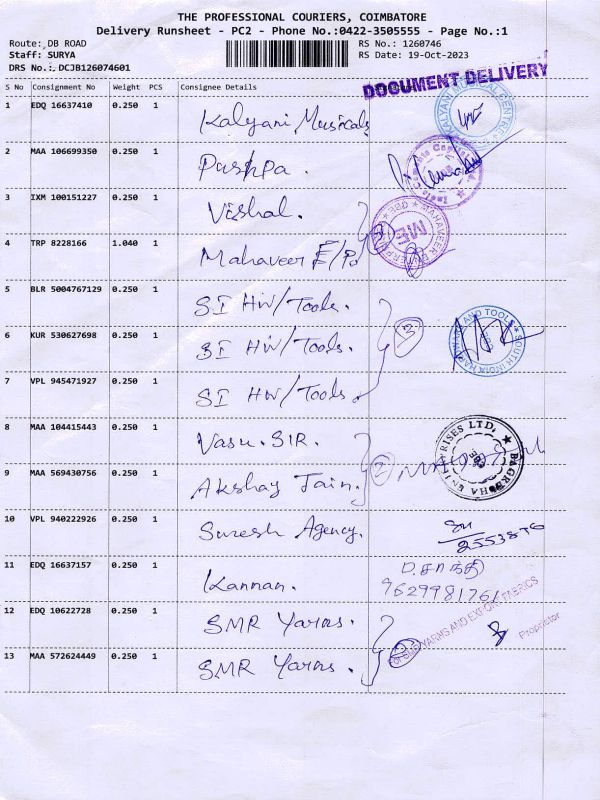 THE PROFESSIONAL COURIERS, COIMBATORE
Delivery Runsheet - PC2 - Phone No.:0422-3505555 - Page No.:1
Route: DB ROAD
RS No.: 1260746
Staff: SURYA
RS Date: 19-Oct-2023
DRS No.: DCJB126074601
DOCUMENT DELIVERY
S No Consignment No Weight PCS Consignee Details
1 EDQ 16637410 0.250 1 Kalyani Musicals
2 MAA 106699350 0.250 1 Pushpa.
3 IXM 100151227 0.250 1 Vishal.
4 TRP 8228166 1.040 1 Mahaveer E/P
2
MAHAVEER
ME
5 BLR 5004767129 0.250 1 SI HW/Tools.
6 KUR 530627698 0.250 1 SI HW/Tools.
3
SOUTH INDIA HARDWARE AND TOOLS
7 VPL 945471927 0.250 1 SI HW/Tools.
8 MAA 104415443 0.250 1 Vasu. SIR.
2
9 MAA 569430756 0.250 1 Akshay Jain.
10 VPL 940222926 0.250 1 Suresh Agency.
11 EDQ 16637157 0.250 1 Kannan.
D.சாந்தி
9629981761
12 EDQ 10622728 0.250 1 SMR Yarns.
2
For SMR YARNS AND EXPORT FABRICS
Proprietor
13 MAA 572624449 0.250 1 SMR Yarns.